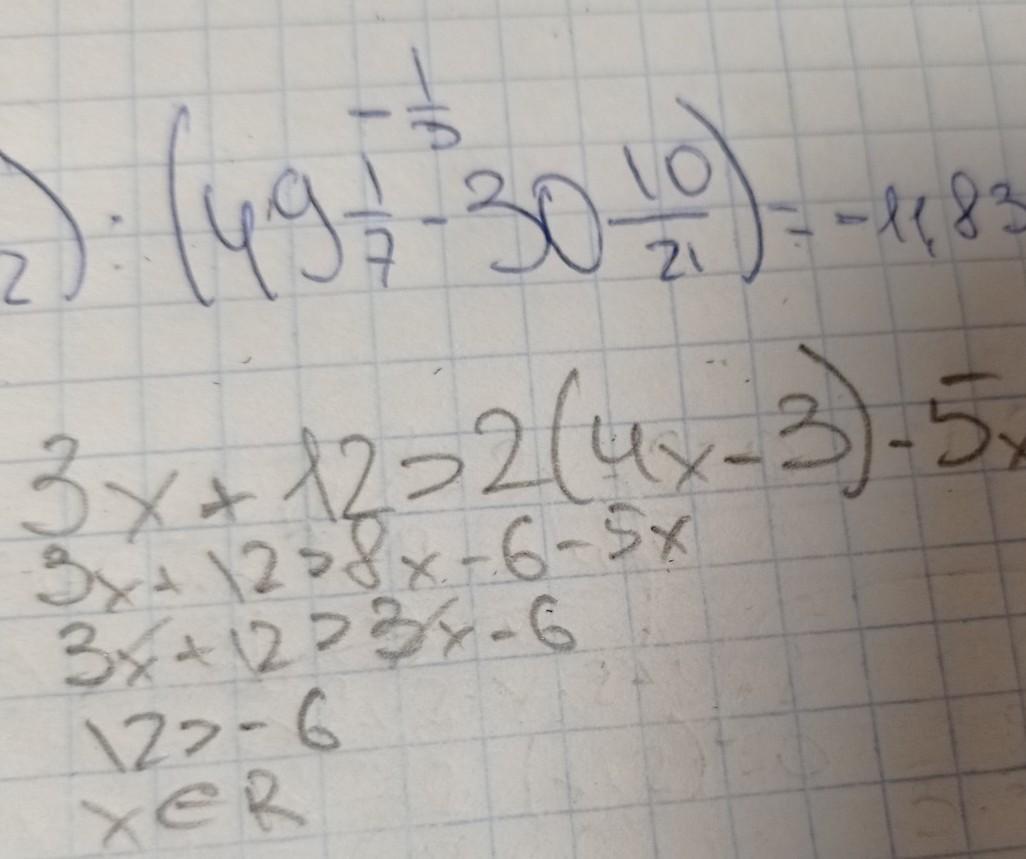 2) : (49 1/7 - 30 10/21) = -11,83
3x + 12 > 2(4x - 3) - 5x
3x + 12 > 8x - 6 - 5x
3x + 12 > 3x - 6
12 > - 6
x ∈ R